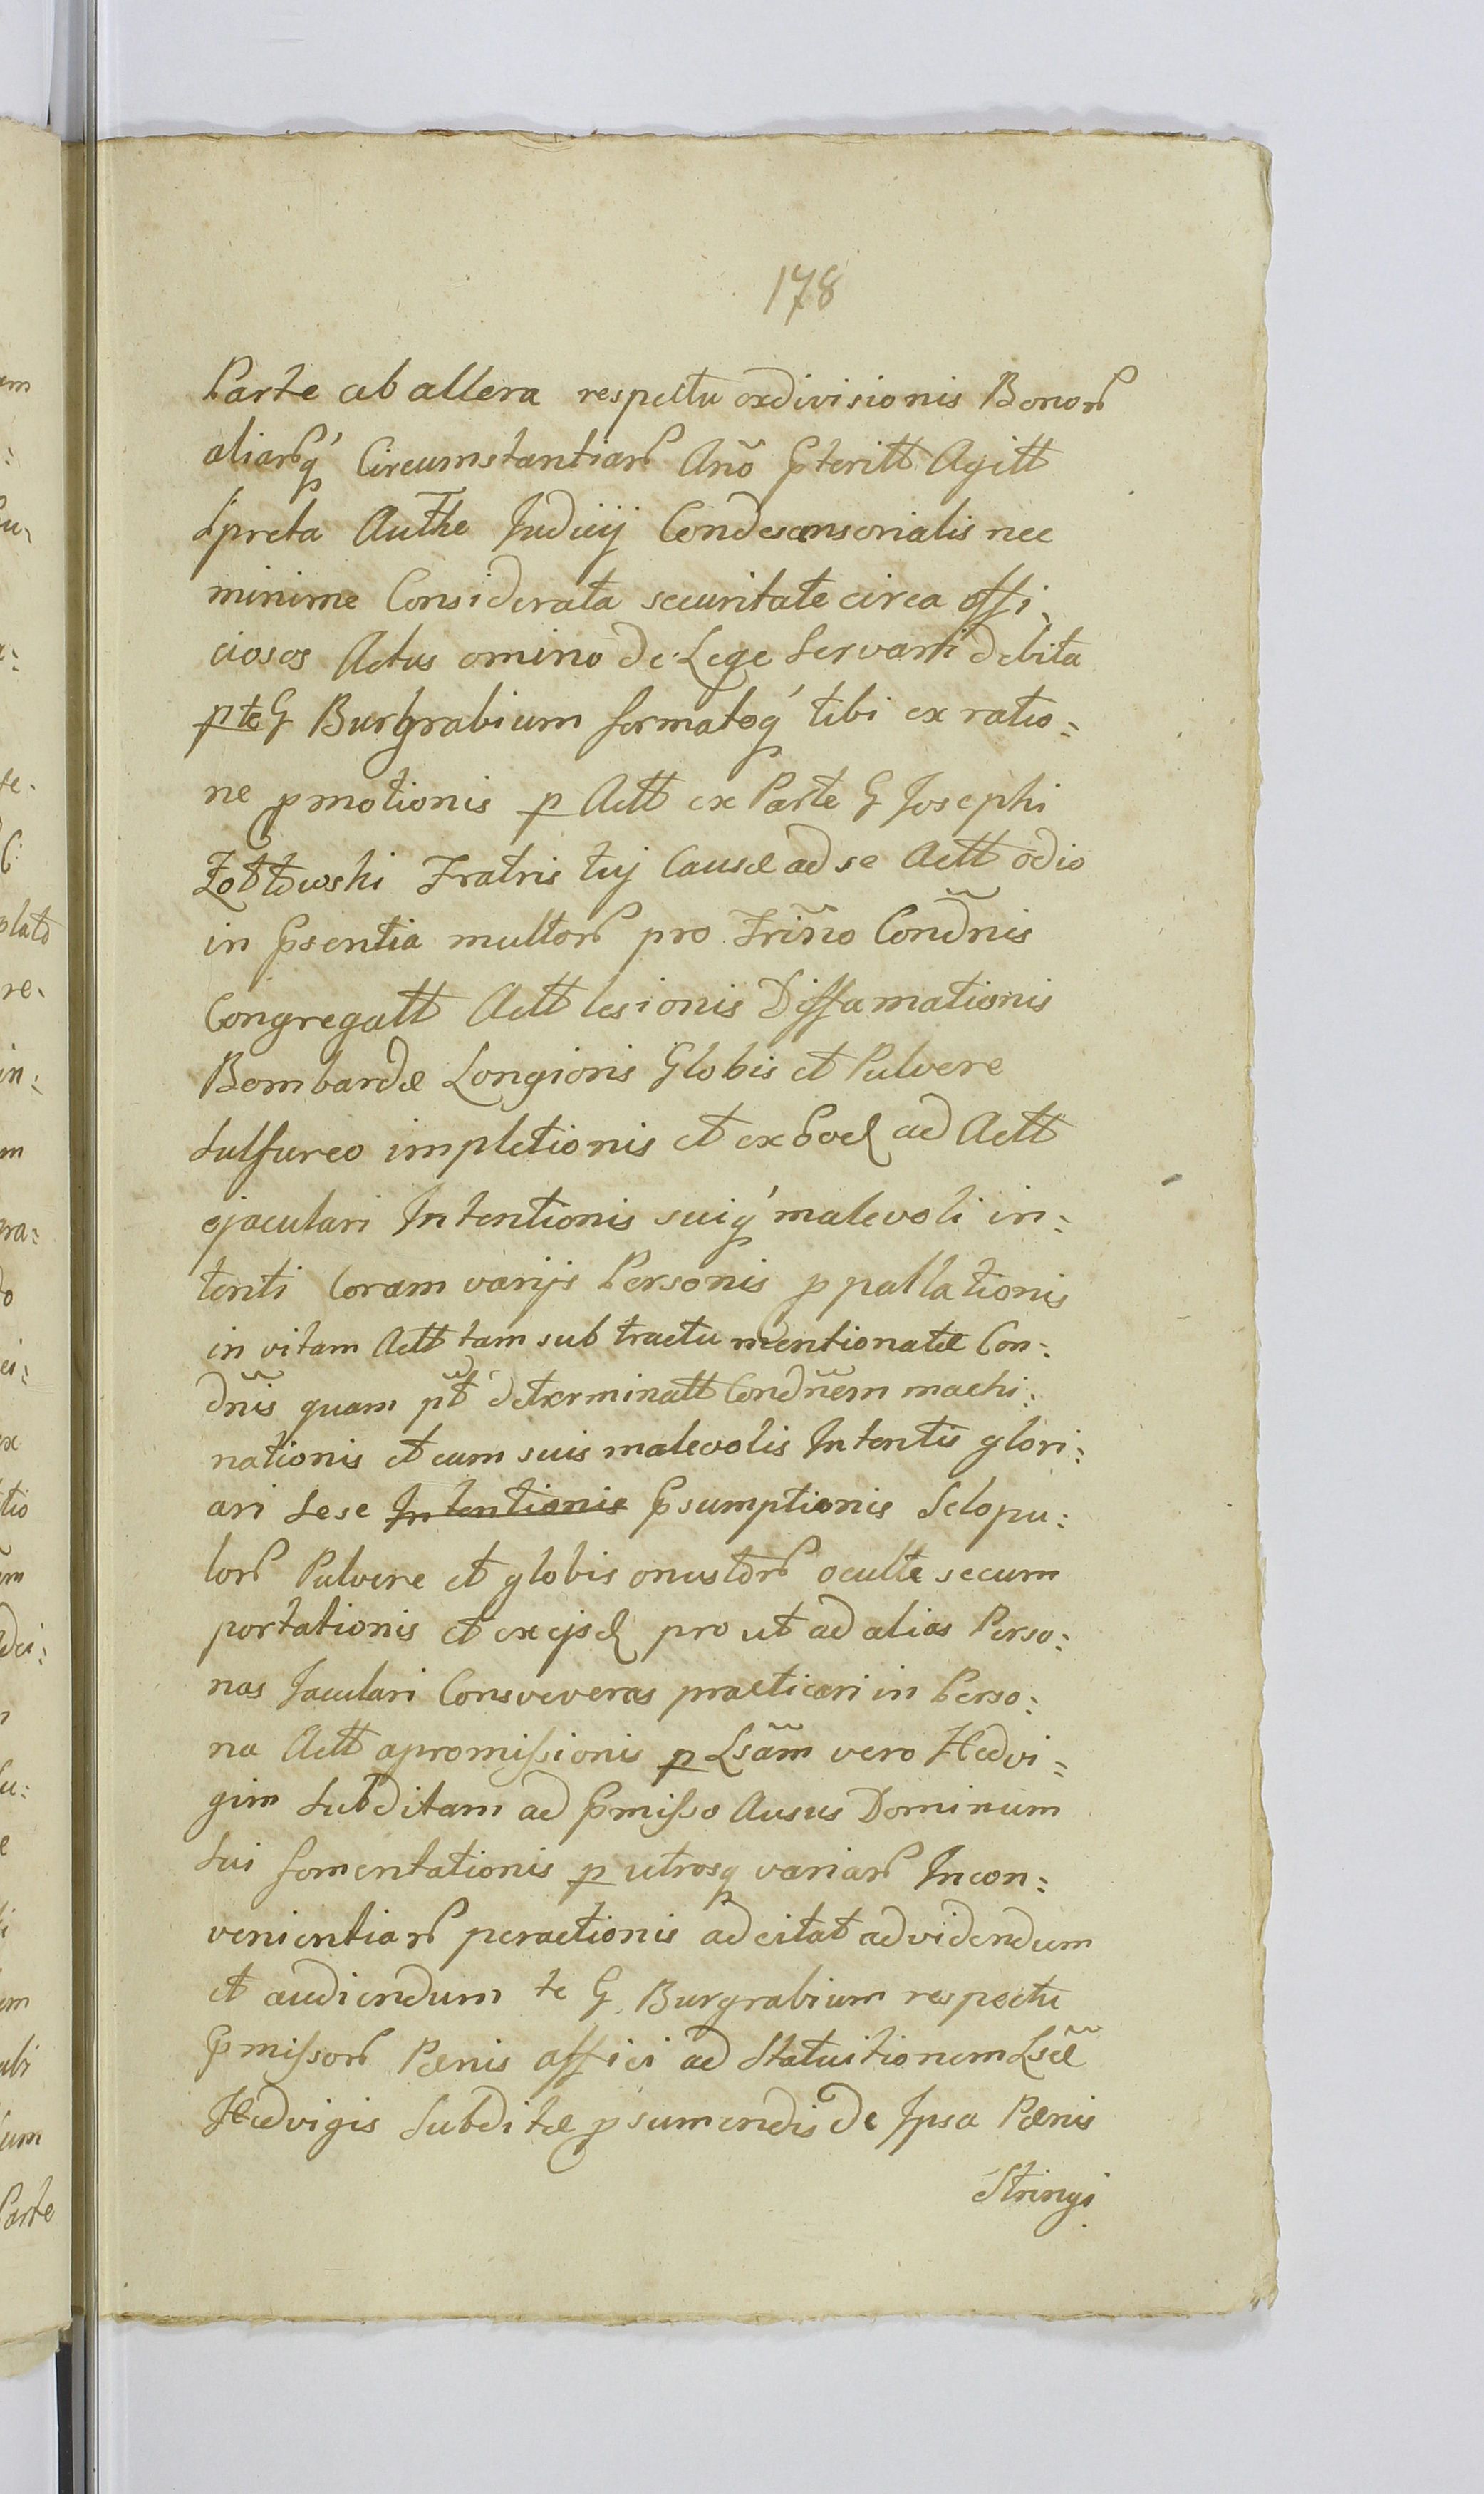 178
Parte ab altera respectu exdivisionis Bonorꝝ
aliarꝝq́ Circumstantiarꝝ Año Pteritt Agitt
Spreta Authe Judicij Condescensorialis nec
minime Considerata securitate circa offi-
ciosos Actus omino de Lege Servari debita
p te G Burgrabium formatoq́ tibi ex ratio=
ne pmotionis p Actt ex Parte G Josephi
Żołtowski Fratris tuj Causæ ad se Actt odio
in Psentia multorꝝ pro Triño Condñis
Congregatt Actt lesionis Diffamationis
Bombardæ Longioris Globis et Pulvere
Sulfureo impletionis et ex ad Actt
ejaculari Intentionis suiq́ malevoli in=
tenti Coram varijs Personis p pallationis
in vitam Actt tam sub tractu mentionatæ Con=
dñis quam determinatt Condñem machi=
nationis et cum suis malevolis Intentis glori=
ari Sese Intentionis Psumptionis Sclopu=
lorꝝ Pulvere et globis onustorꝝ oculte secum
portationis et ex ejsd pro ut ad alias Perso=
nas Jaculari Consveveras practicari in Perso=
na Actt apromissionis p Lsãm vero Hedvi=
gim Subditam ad Pmisso Ausus Dominum
Sui fomentationis p utrosq variarꝝ Incon=
venientiarꝝ peractionis adcitat ad videndum
et audiendum te G. Burgrabium respectu
Pmissorꝝ Pænis affici ad Statuitionem Lsæ̃
Hedvigis Subditæ p sumendis de Ipsa Pænis
Stringi